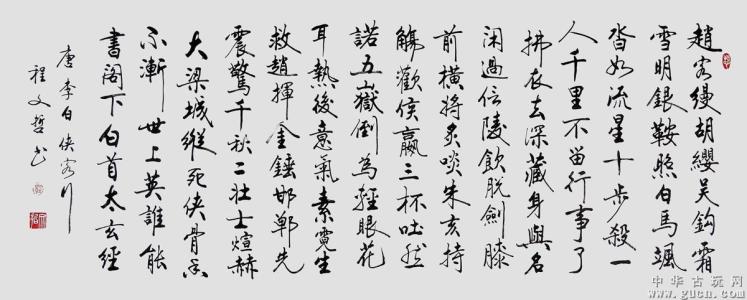 趙客縵胡纓吳鉤霜
雪明銀鞍照白馬颯
沓如流星十步殺一
人千里不留行事了
拂衣去深藏身與名
閑過信陵飲脫劍膝
前橫將炙啖朱亥持
觴勸侯嬴三杯吐然
諾五嶽倒為輕眼花
耳熱後意氣素霓生
救趙揮金錘邯鄲先
震驚千秋二壯士煊赫
大梁城縱死俠骨香
不慚世上英誰能
書閣下白首太玄經
唐李白俠客行
程文哲书
中华古玩网
www.gucn.com